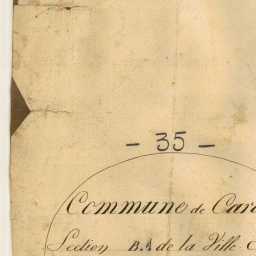 - 35 -
Commune de Car
Section B.A de la Ville